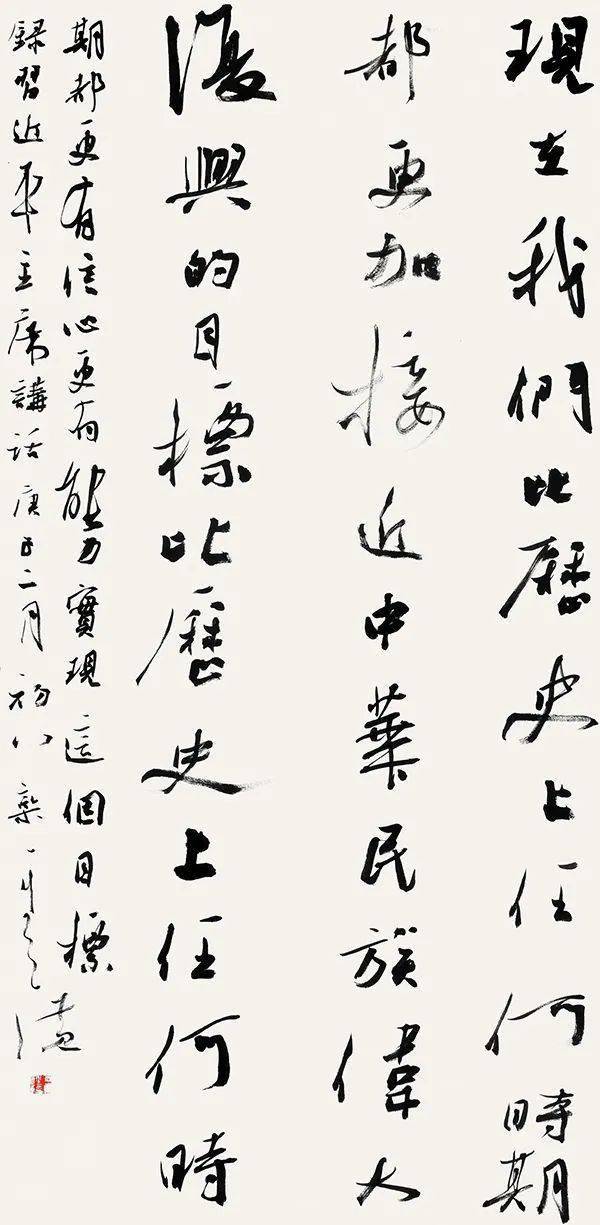 現在我們比歷史上任何時期
都更加接近中華民族偉大
復興的目標比歷史上任何時
期都更有信心更有能力實現這個目標
録習近平主席講話庚子二月初八